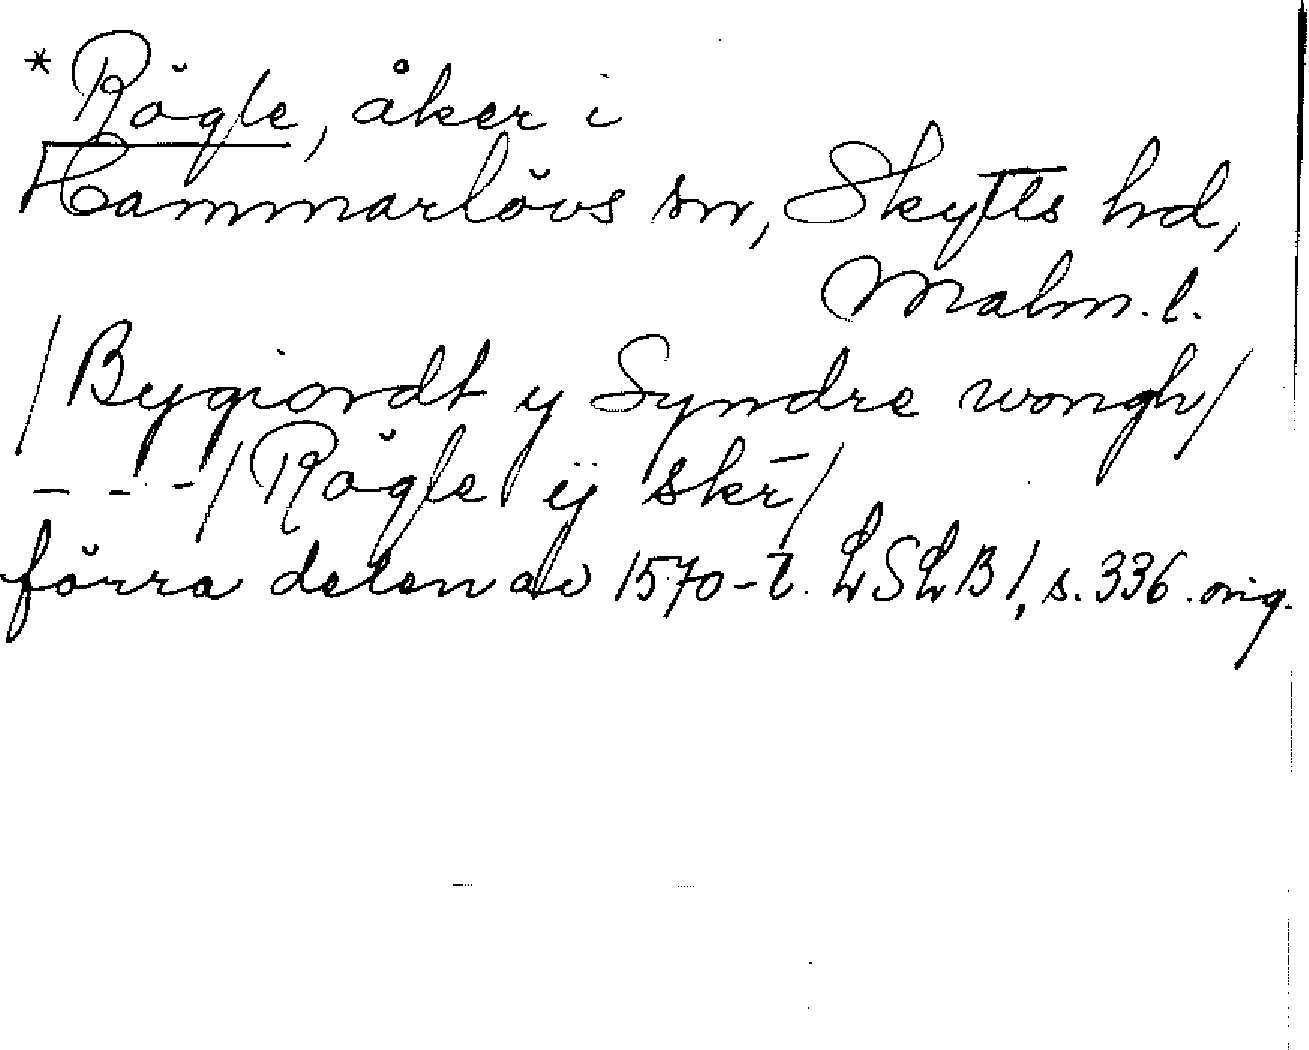 *Rögle, åker i
Hammarlövs sn, Skytts hd,
Malm. l.
/Bygiordt y Syndre wongh/
- - -/Rögle ij skr̄/
förra delen av 1570-t. LSLB 1, s. 336 .orig.